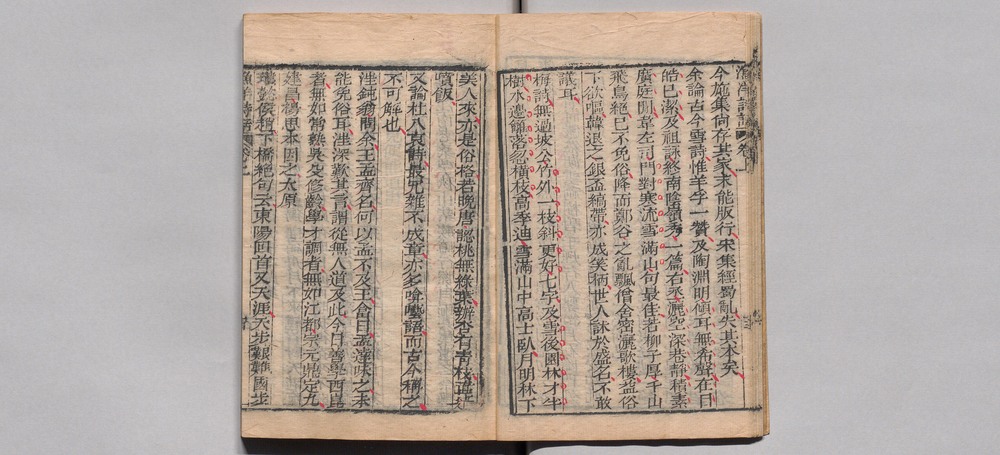 漁洋詩話 卷上
今施集尚存其家未能版行宋集經蜀亂失其本矣
余論古今雪詩惟羊孚一贊及陶淵明傾耳無希聲在目
皓已潔及祖詠終南陰嶺秀一篇右丞灑空深巷靜積素
廣庭閒韋左司門對寒流雪滿山句最佳若柳子厚千山
飛鳥絕已不免俗降而鄭谷之亂飄僧舍密灑歌樓益俗
下欲嘔韓退之銀盃縞帶亦成笑柄世人訹於盛名不敢
議耳
梅詩無過坡公竹外一枝斜更好七字及雪後園林才半
樹水邊籬落忽橫枝高季迪雪滿山中高士臥月明林下
美人來亦是俗格若晚唐認桃無綠葉辨杏有青枝直足
噴飯
又論杜八哀詩最宂雜不成章亦多啽囈語而古今稱之
不可解也
汪鈍翁問余王孟齊名何以孟不及王余曰孟詩味之未
能免俗耳汪深歎其言謂從無人道及此今日善學西崑
者無如常熟吳殳修齡學才調者無如江都宗元鼎定九
建昌楊思本因之太原
稍下橋絕句云東陽回首又天涯天步艱難國步
漁洋詩話 卷上